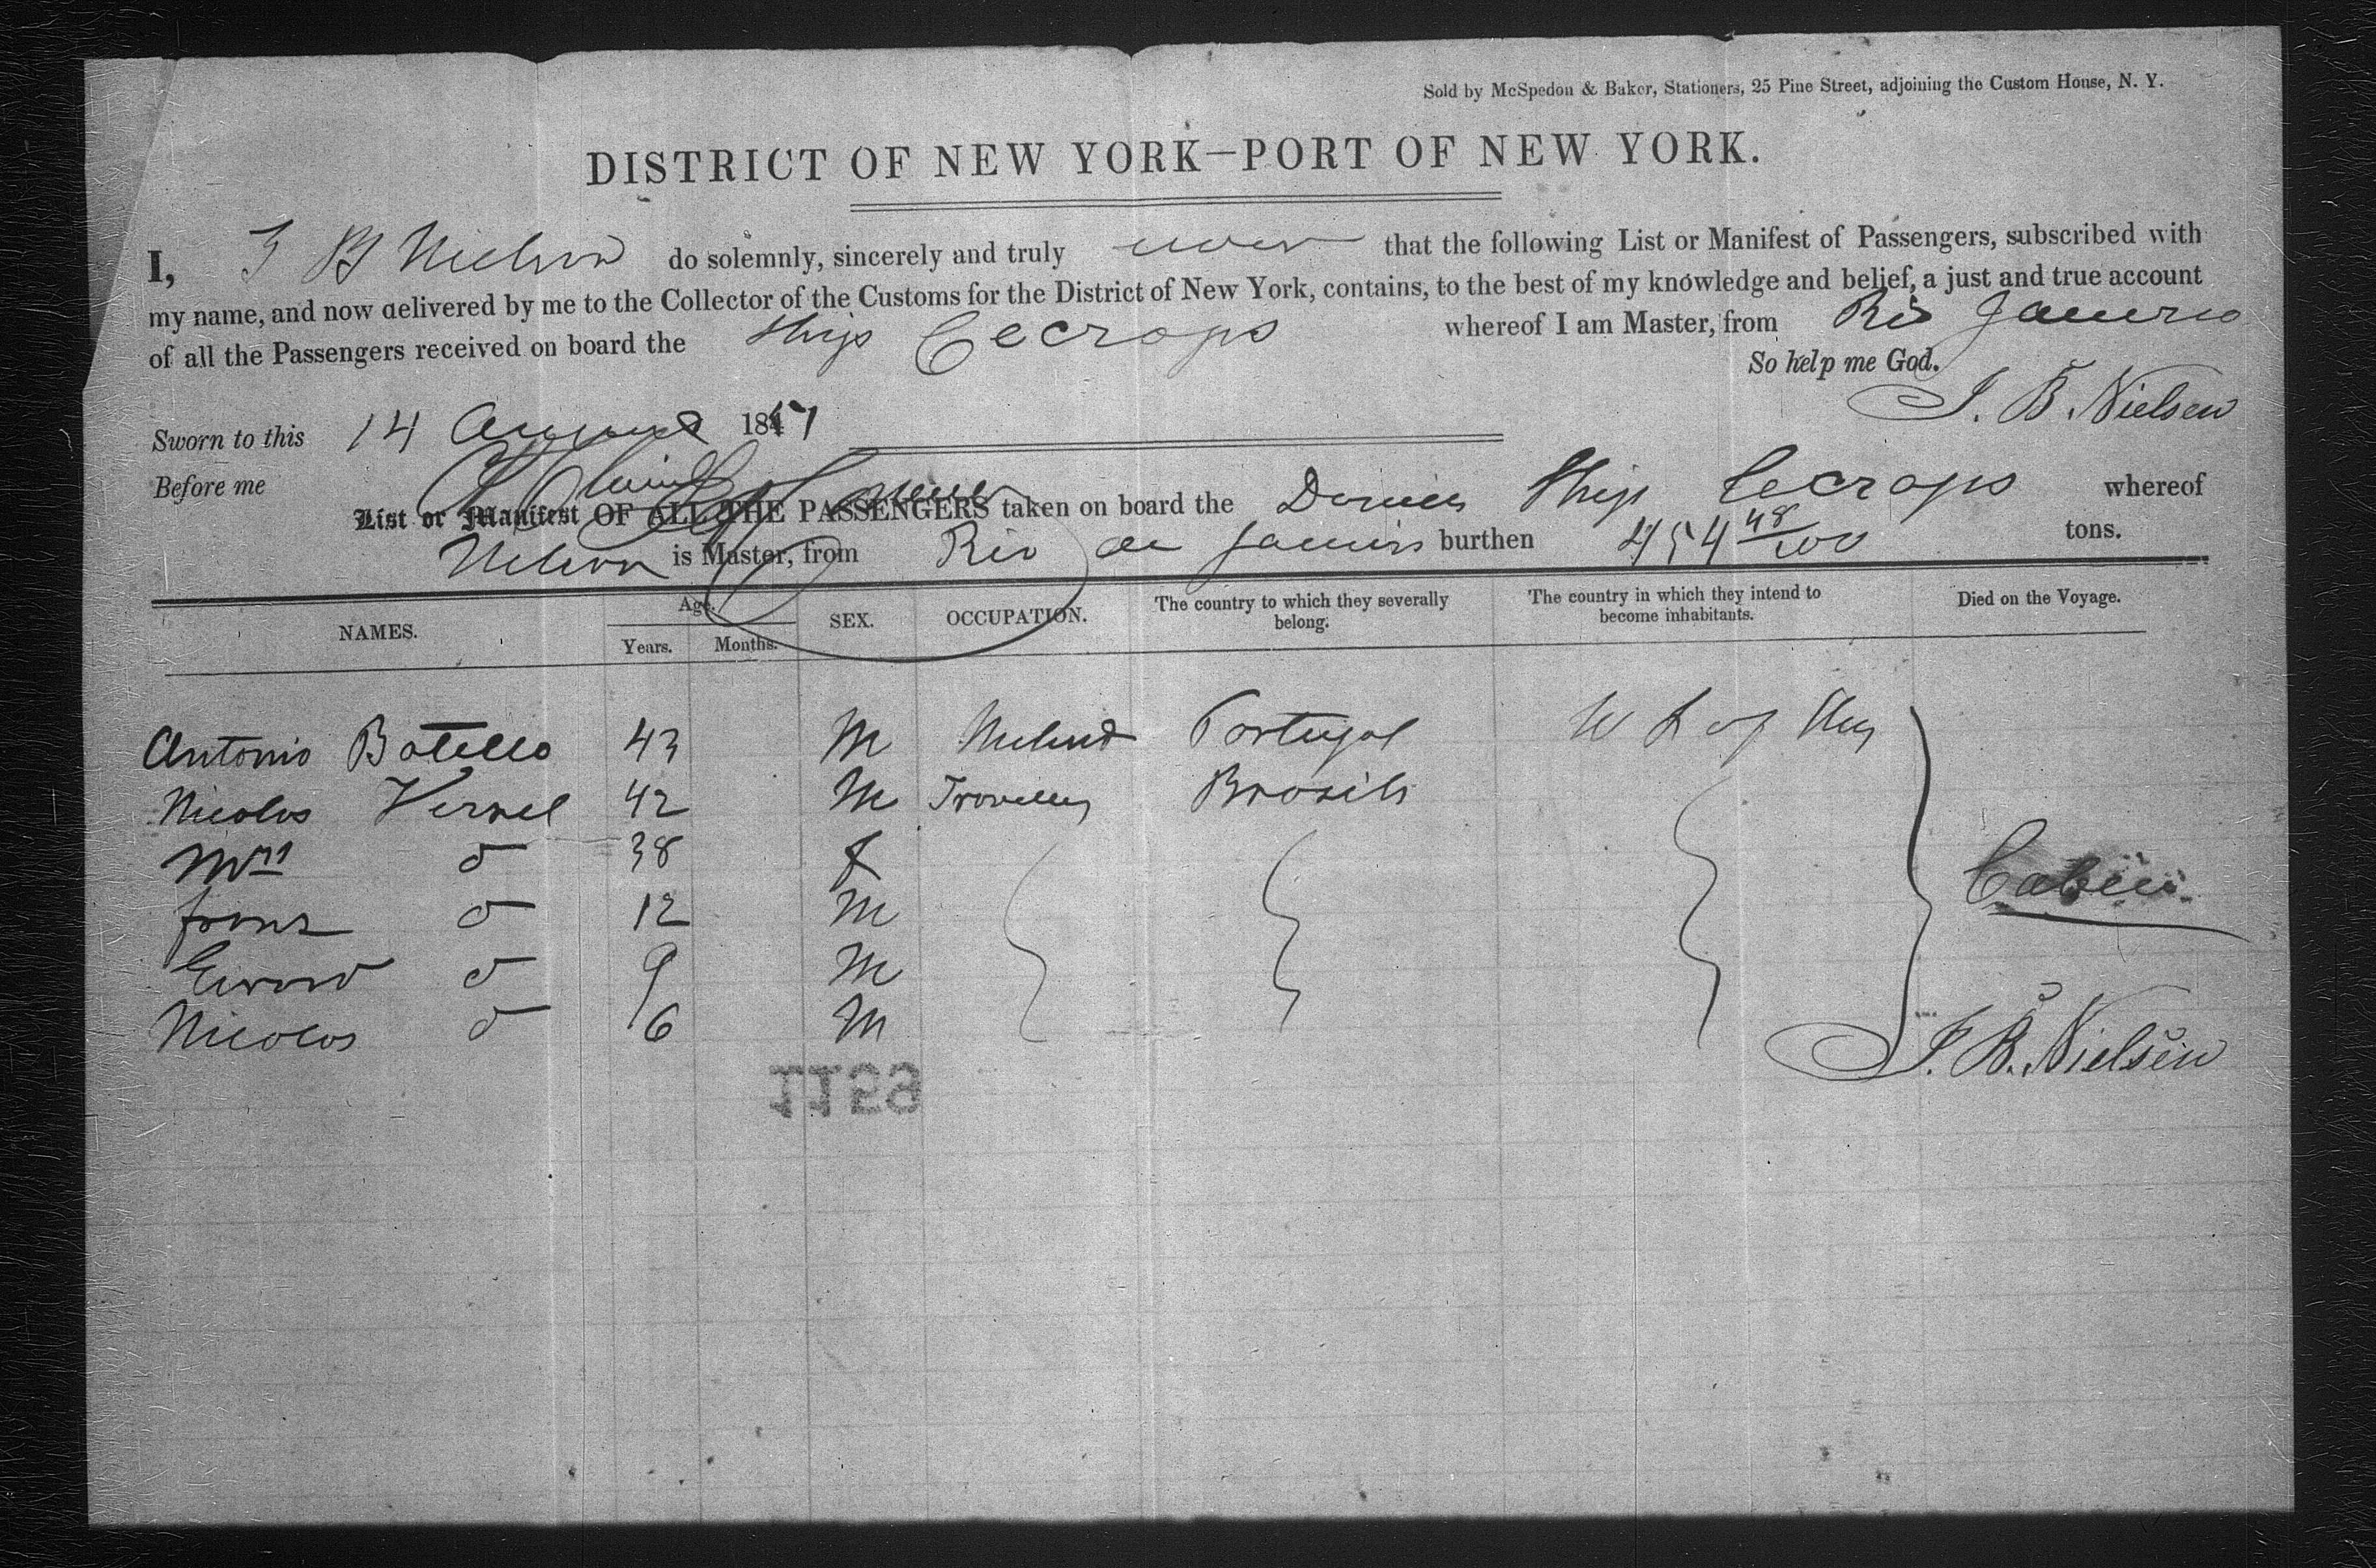 Sold by McSpedon & Baker, Stationers, 25 Pine Street, adjoining the Custom House, N. Y.
DISTRICT OF NEW YORK—PORT OF NEW YORK.
I, J B Nielson do solemnly, sincerely and truly swear that the following List or Manifest of Passengers, subscribed with
my name, and now delivered by me to the Collector of the Customs for the District of New York, contains, to the best of my knowledge and belief, a just and true account
of all the Passengers received on board the Ship Cecrops whereof I am Master, from Rio Janeiro
So help me God.
J. B. Nielsen
Sworn to this 14 August 1851
Before me
List or Manifest OF ALL THE PASSENGERS taken on board the Ship Cecrops whereof
Nelson is Master, from Rio de Janeiro burthen 454 48/100 tons.
NAMES. Age. Years. Months. SEX. OCCUPATION. The country to which they severally belong. The country in which they intend to become inhabitants. Died on the Voyage.
Antonio Botello 43 M Portugal
Nicolos Vernel 42 M Brosils
Mrs d 38 f
franz d 12 M
d 9 M
Nicolos d 6 M
Cabin
J. B. Nielsen
1159